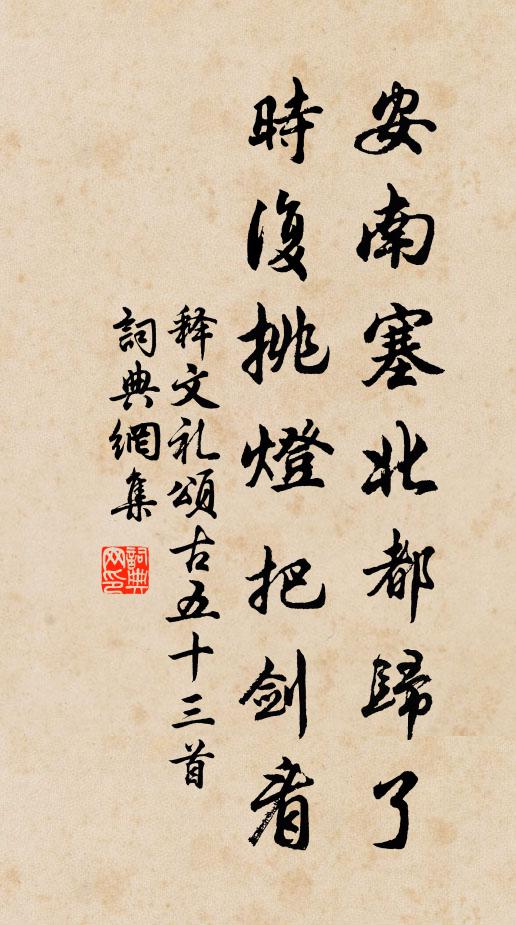 安南塞北都歸了
時復挑燈把剑看
释文礼頌古五十三首
詞典網集
詞典網印